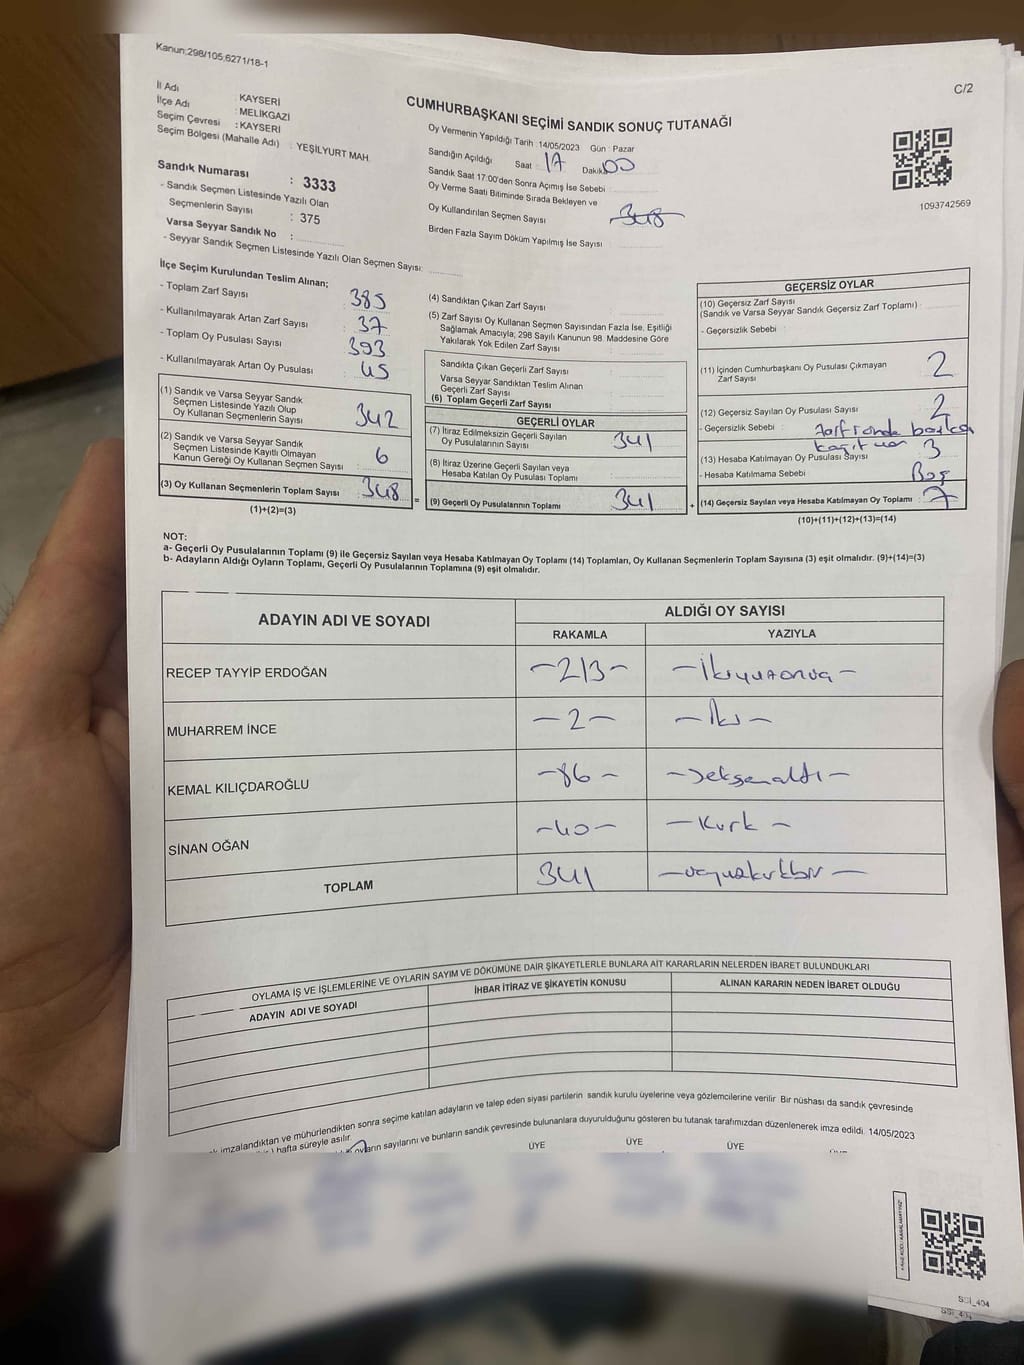 Kanun:298/105,6271/18-1
C/2
İl Adı : KAYSERİ
İlçe Adı : MELİKGAZİ
Seçim Çevresi : KAYSERİ
Seçim Bölgesi (Mahalle Adı) : YEŞİLYURT MAH.
Sandık Numarası : 3333
- Sandık Seçmen Listesinde Yazılı Olan
Seçmenlerin Sayısı : 375
Varsa Seyyar Sandık No :
- Seyyar Sandık Seçmen Listesinde Yazılı Olan Seçmen Sayısı:
CUMHURBAŞKANI SEÇİMİ SANDIK SONUÇ TUTANAĞI
Oy Vermenin Yapıldığı Tarih : 14/05/2023 Gün : Pazar
Sandığın Açıldığı Saat 17 Dakika 00
Sandık Saat 17:00'den Sonra Açımış İse Sebebi :
Oy Verme Saati Bitiminde Sırada Bekleyen ve
Oy Kullandırılan Seçmen Sayısı 348
Birden Fazla Sayım Döküm Yapılmış İse Sayısı
1093742569
İlçe Seçim Kurulundan Teslim Alınan;
- Toplam Zarf Sayısı 385
- Kullanılmayarak Artan Zarf Sayısı 37
- Toplam Oy Pusulası Sayısı 393
- Kullanılmayarak Artan Oy Pusulası 45
(1) Sandık ve Varsa Seyyar Sandık
Seçmen Listesinde Yazılı Olup
Oy Kullanan Seçmenlerin Sayısı 342
(2) Sandık ve Varsa Seyyar Sandık
Seçmen Listesinde Kayıtlı Olmayan
Kanun Gereği Oy Kullanan Seçmen Sayısı 6
(3) Oy Kullanan Seçmenlerin Toplam Sayısı 348
(1)+(2)=(3)
=
(4) Sandıktan Çıkan Zarf Sayısı :
(5) Zarf Sayısı Oy Kullanan Seçmen Sayısından Fazla İse, Eşitliği
Sağlamak Amacıyla; 298 Sayılı Kanunun 98. Maddesine Göre
Yakılarak Yok Edilen Zarf Sayısı
Sandıkta Çıkan Geçerli Zarf Sayısı :
Varsa Seyyar Sandıktan Teslim Alınan
Geçerli Zarf Sayısı
(6) Toplam Geçerli Zarf Sayısı
GEÇERLİ OYLAR
(7) İtiraz Edilmeksizin Geçerli Sayılan
Oy Pusulalarının Sayısı 341
(8) İtiraz Üzerine Geçerli Sayılan veya
Hesaba Katılan Oy Pusulası Toplamı
(9) Geçerli Oy Pusulalarının Toplamı 341
+
GEÇERSİZ OYLAR
(10) Geçersiz Zarf Sayısı
(Sandık ve Varsa Seyyar Sandık Geçersiz Zarf Toplamı) :
- Geçersizlik Sebebi :
(11) İçinden Cumhurbaşkanı Oy Pusulası Çıkmayan
Zarf Sayısı 2
(12) Geçersiz Sayılan Oy Pusulası Sayısı 2
- Geçersizlik Sebebi : Zarfında başka
kağıt
(13) Hesaba Katılmayan Oy Pusulası Sayısı 3
- Hesaba Katılmama Sebebi Boş
(14) Geçersiz Sayılan veya Hesaba Katılmayan Oy Toplamı : 7
(10)+(11)+(12)+(13)=(14)
NOT:
a- Geçerli Oy Pusulalarının Toplamı (9) ile Geçersiz Sayılan veya Hesaba Katılmayan Oy Toplamı (14) Toplamları, Oy Kullanan Seçmenlerin Toplam Sayısına (3) eşit olmalıdır. (9)+(14)=(3)
b- Adayların Aldığı Oyların Toplamı, Geçerli Oy Pusulalarının Toplamına (9) eşit olmalıdır.
ADAYIN ADI VE SOYADI
ALDIĞI OY SAYISI
RAKAMLA YAZIYLA
RECEP TAYYİP ERDOĞAN -213- -İkiyüzonüç-
MUHARREM İNCE -2- -İki-
KEMAL KILIÇDAROĞLU -86- -Seksenaltı-
SİNAN OĞAN -40- -Kırk-
TOPLAM 341 -üçyüzkırkbir-
OYLAMA İŞ VE İŞLEMLERİNE VE OYLARIN SAYIM VE DÖKÜMÜNE DAİR ŞİKAYETLERLE BUNLARA AİT KARARLARIN NELERDEN İBARET BULUNDUKLARI
ADAYIN ADI VE SOYADI İHBAR İTİRAZ VE ŞİKAYETİN KONUSU ALINAN KARARIN NEDEN İBARET OLDUĞU
imzalandıktan ve mühürlendikten sonra seçime katılan adayların ve talep eden siyasi partilerin sandık kurulu üyelerine veya gözlemcilerine verilir Bir nüshası da sandık çevresinde
hafta süreyle asılır.
sayılarını ve bunların sandık çevresinde bulunanlara duyurulduğunu gösteren bu tutanak tarafımızdan düzenlenerek imza edildi. 14/05/2023
ÜYE ÜYE ÜYE
SSİ_404
SSİ_404